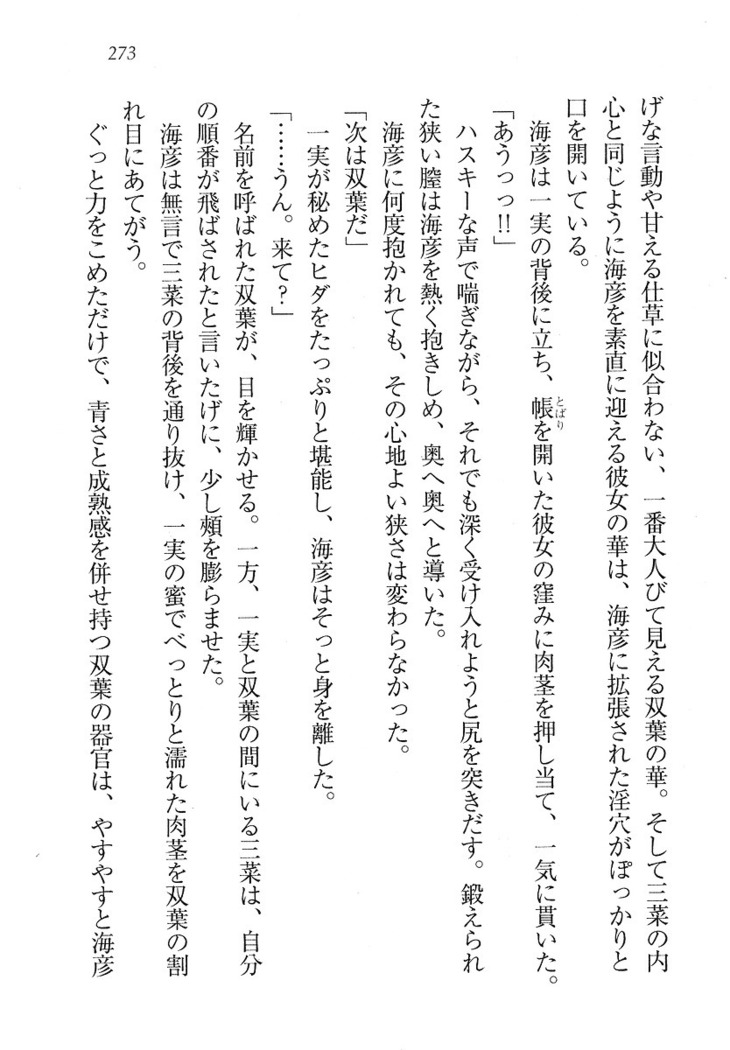 273
げな言動や甘える仕草に似合わない、一番大人びて見える双葉の華。そして三菜の内
心と同じように海彦を素直に迎える彼女の華は、海彦に拡張された淫穴がぽっかりと
口を開いている。
海彦は一実の背後に立ち、帳を開いた彼女の窪みに肉茎を押し当て、一気に貫いた。
とばり
「あうっっ!!」
ハスキーな声で喘ぎながら、それでも深く受け入れようと尻を突きだす。鍛えられ
た狭い膣は海彦を熱く抱きしめ、奥へ奥へと導いた。
海彦に何度抱かれても、その心地よい狭さは変わらなかった。
「次は双葉だ」
一実が秘めたヒダをたっぷりと堪能し、海彦はそっと身を離した。
「……うん。来て?」
名前を呼ばれた双葉が、目を輝かせる。一方、一実と双葉の間にいる三菜は、自分
の順番が飛ばされたと言いたげに、少し頰を膨らませた。
海彦は無言で三菜の背後を通り抜け、一実の蜜でべっとりと濡れた肉茎を双葉の割
れ目にあてがう。
ぐっと力をこめただけで、青さと成熟感を併せ持つ双葉の器官は、やすやすと海彦